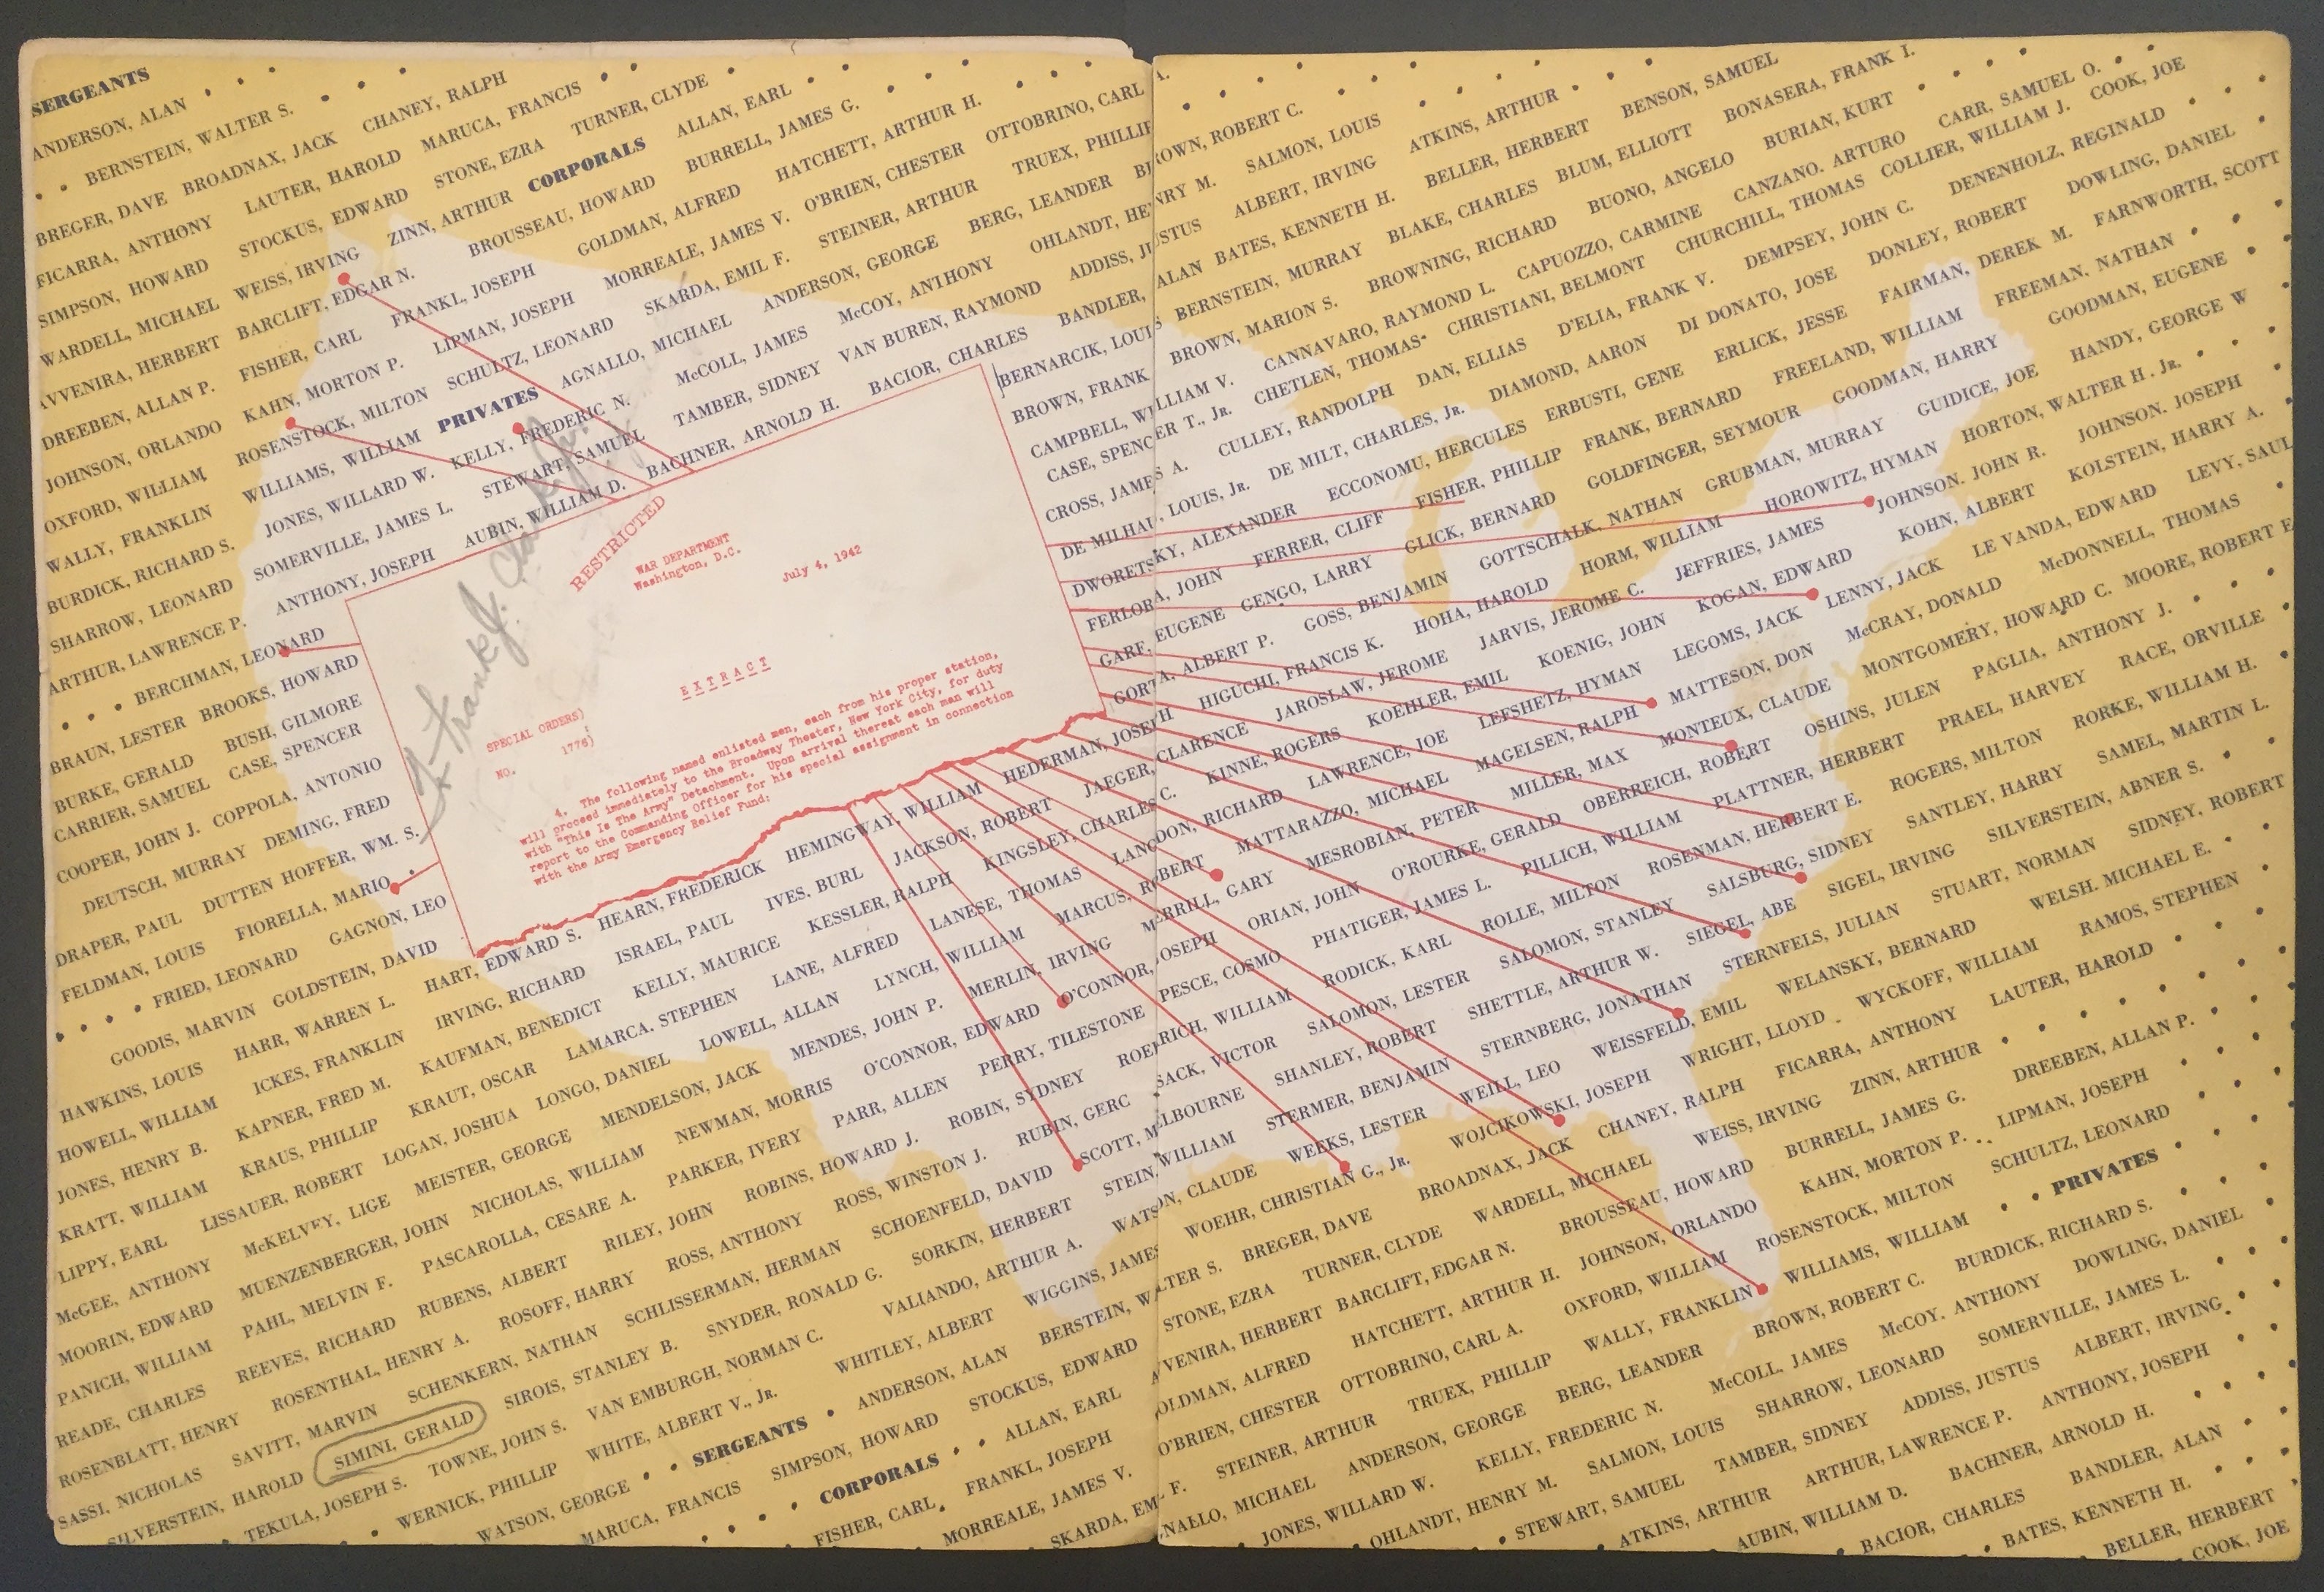 SERGEANTS
ANDERSON, ALAN
BERNSTEIN, WALTER S.
BREGER, DAVE BROADNAX, JACK CHANEY, RALPH
FICARRA, ANTHONY LAUTER, HAROLD MARUCA, FRANCIS
SIMPSON, HOWARD STOCKUS, EDWARD STONE, EZRA TURNER, CLYDE
WARDELL, MICHAEL WEISS, IRVING ZINN, ARTHUR CORPORALS ALLAN, EARL
AVVENIRA, HERBERT BARCLIFT, EDGAR N. BROUSSEAU, HOWARD BURRELL, JAMES G.
DREEBEN, ALLAN P. FISHER, CARL FRANKL, JOSEPH GOLDMAN, ALFRED HATCHETT, ARTHUR H.
JOHNSON, ORLANDO KAHN, MORTON P. LIPMAN, JOSEPH MORREALE, JAMES V. O'BRIEN, CHESTER OTTOBRINO, CARL A.
OXFORD, WILLIAM ROSENSTOCK, MILTON SCHULTZ, LEONARD SKARDA, EMIL F. STEINER, ARTHUR TRUEX, PHILLIP
WALLY, FRANKLIN WILLIAMS, WILLIAM PRIVATES AGNALLO, MICHAEL ANDERSON, GEORGE BERG, LEANDER BROWN, ROBERT C.
BURDICK, RICHARD S. JONES, WILLARD W. KELLY, FREDERIC N. McCOLL, JAMES McCOY, ANTHONY OHLANDT, HENRY M. SALMON, LOUIS
SHARROW, LEONARD SOMERVILLE, JAMES L. STEWART, SAMUEL TAMBER, SIDNEY VAN BUREN, RAYMOND ADDISS, JUSTUS ALBERT, IRVING ATKINS, ARTHUR
ARTHUR, LAWRENCE P. ANTHONY, JOSEPH AUBIN, WILLIAM D. BACHNER, ARNOLD H. BACIOR, CHARLES BANDLER, ALAN BATES, KENNETH H. BELLER, HERBERT BENSON, SAMUEL
BERCHMAN, LEONARD BERNARCIK, LOUIS BERNSTEIN, MURRAY BLAKE, CHARLES BLUM, ELLIOTT BONASERA, FRANK I.
BRAUN, LESTER BROOKS, HOWARD BROWN, FRANK BROWN, MARION S. BROWNING, RICHARD BUONO, ANGELO BURIAN, KURT
BURKE, GERALD BUSH, GILMORE CAMPBELL, WILLIAM V. CANNAVARO, RAYMOND L. CAPUOZZO, CARMINE CANZANO. ARTURO CARR, SAMUEL O.
CARRIER, SAMUEL CASE, SPENCER CASE, SPENCER T., JR. CHETLEN, THOMAS CHRISTIANI, BELMONT CHURCHILL, THOMAS COLLIER, WILLIAM J. COOK, JOE
COOPER, JOHN J. COPPOLA, ANTONIO CROSS, JAMES A. CULLEY, RANDOLPH DAN, ELLIAS D'ELIA, FRANK V. DEMPSEY, JOHN C. DENENHOLZ, REGINALD
DEUTSCH, MURRAY DEMING, FRED DE MILHAU, LOUIS, JR. DE MILT, CHARLES, JR. DIAMOND, AARON DI DONATO, JOSE DONLEY, ROBERT DOWLING, DANIEL
DRAPER, PAUL DUTTEN HOFFER, WM. S. DWORETSKY, ALEXANDER ECCONOMU, HERCULES ERBUSTI, GENE ERLICK, JESSE FAIRMAN, DEREK M. FARNWORTH, SCOTT
FELDMAN, LOUIS FIORELLA, MARIO FERLORA, JOHN FERRER, CLIFF FISHER, PHILLIP FRANK, BERNARD FREELAND, WILLIAM FREEMAN, NATHAN
FRIED, LEONARD GAGNON, LEO GARF, EUGENE GENGO, LARRY GLICK, BERNARD GOLDFINGER, SEYMOUR GOODMAN, HARRY GOODMAN, EUGENE
GOODIS, MARVIN GOLDSTEIN, DAVID GORTA, ALBERT P. GOSS, BENJAMIN GOTTSCHALK, NATHAN GRUBMAN, MURRAY GUIDICE, JOE HANDY, GEORGE W
RESTRICTED
WAR DEPARTMENT
Washington, D.C.
July 4, 1942
EXTRACT
SPECIAL ORDERS)
:
NO. 1776)
4. The following named enlisted men, each from his proper station,
will proceed immediately to the Broadway Theater, New York City, for duty
with "This Is The Army" Detachment. Upon arrival thereat each man will
report to the Commanding Officer for his special assignment in connection
with the Army Emergency Relief Fund:
Frank J.
HAWKINS, LOUIS HARR, WARREN L. HART, EDWARD S. HEARN, FREDERICK HEMINGWAY, WILLIAM HEDERMAN, JOSEPH HIGUCHI, FRANCIS K. HOHA, HAROLD HORM, WILLIAM HOROWITZ, HYMAN HORTON, WALTER H. JR.
HOWELL, WILLIAM ICKES, FRANKLIN IRVING, RICHARD ISRAEL, PAUL IVES, BURL JACKSON, ROBERT JAEGER, CLARENCE JAROSLAW, JEROME JARVIS, JEROME C. JEFFRIES, JAMES JOHNSON. JOHN R. JOHNSON. JOSEPH
JONES, HENRY B. KAPNER, FRED M. KAUFMAN, BENEDICT KELLY, MAURICE KESSLER, RALPH KINGSLEY, CHARLES C. KINNE, ROGERS KOEHLER, EMIL KOENIG, JOHN KOGAN, EDWARD KOHN, ALBERT KOLSTEIN, HARRY A.
KRATT, WILLIAM KRAUS, PHILLIP KRAUT, OSCAR LAMARCA. STEPHEN LANE, ALFRED LANESE, THOMAS LANGDON, RICHARD LAWRENCE, JOE LEFSHETZ, HYMAN LEGOMS, JACK LENNY, JACK LE VANDA, EDWARD LEVY, SAUL
LIPPY, EARL LISSAUER, ROBERT LOGAN, JOSHUA LONGO, DANIEL LOWELL, ALLAN LYNCH, WILLIAM MARCUS, ROBERT MATTARAZZO, MICHAEL MAGELSEN, RALPH MATTESON, DON McCRAY, DONALD McDONNELL, THOMAS
McGEE, ANTHONY McKELVEY, LIGE MEISTER, GEORGE MENDELSON, JACK MENDES, JOHN P. MERLIN, IRVING MERRILL, GARY MESROBIAN, PETER MILLER, MAX MONTEUX, CLAUDE MONTGOMERY, HOWARD C. MOORE, ROBERT E
MOORIN, EDWARD MUENZENBERGER, JOHN NICHOLAS, WILLIAM NEWMAN, MORRIS O'CONNOR, EDWARD O'CONNOR, JOSEPH ORIAN, JOHN O'ROURKE, GERALD OBERREICH, ROBERT OSHINS, JULEN PAGLIA, ANTHONY J.
PANICH, WILLIAM PAHL, MELVIN F. PASCAROLLA, CESARE A. PARKER, IVERY PARR, ALLEN PERRY, TILESTONE PESCE, COSMO PHATIGER, JAMES L. PILLICH, WILLIAM PLATTNER, HERBERT PRAEL, HARVEY RACE, ORVILLE
READE, CHARLES REEVES, RICHARD RUBENS, ALBERT RILEY, JOHN ROBINS, HOWARD J. ROBIN, SYDNEY ROERICH, WILLIAM RODICK, KARL ROLLE, MILTON ROSENMAN, HERBERT E. ROGERS, MILTON RORKE, WILLIAM H.
ROSENBLATT, HENRY ROSENTHAL, HENRY A. ROSOFF, HARRY ROSS, ANTHONY ROSS, WINSTON J. RUBIN, GERC SACK, VICTOR SALOMON, LESTER SALOMON, STANLEY SALSBURG, SIDNEY SANTLEY, HARRY SAMEL, MARTIN L.
SASSI, NICHOLAS SAVITT, MARVIN SCHENKERN, NATHAN SCHLISSERMAN, HERMAN SCHOENFELD, DAVID SCOTT, MELBOURNE SHANLEY, ROBERT SHETTLE, ARTHUR W. SIEGEL, ABE SIGEL, IRVING SILVERSTEIN, ABNER S.
SILVERSTEIN, HAROLD SIMINI, GERALD SIROIS, STANLEY B. SNYDER, RONALD G. SORKIN, HERBERT STEIN, WILLIAM STERMER, BENJAMIN STERNBERG, JONATHAN STERNFELS, JULIAN STUART, NORMAN SIDNEY, ROBERT
TEKULA, JOSEPH S. TOWNE, JOHN S. VAN EMBURGH, NORMAN C. VALIANDO, ARTHUR A. WATSON, CLAUDE WEEKS, LESTER WEILL, LEO WEISSFELD, EMIL WELANSKY, BERNARD WELSH. MICHAEL E.
WERNICK, PHILLIP WHITE, ALBERT V., JR. WHITLEY, ALBERT WIGGINS, JAMES WOEHR, CHRISTIAN G., JR. WOJCIKOWSKI, JOSEPH WRIGHT, LLOYD WYCKOFF, WILLIAM RAMOS, STEPHEN
WATSON, GEORGE SERGEANTS ANDERSON, ALAN BERSTEIN, WALTER S. BREGER, DAVE BROADNAX, JACK CHANEY, RALPH FICARRA, ANTHONY LAUTER, HAROLD
MARUCA, FRANCIS SIMPSON, HOWARD STOCKUS, EDWARD STONE, EZRA TURNER, CLYDE WARDELL, MICHAEL WEISS, IRVING ZINN, ARTHUR
CORPORALS ALLAN, EARL AVVENIRA, HERBERT BARCLIFT, EDGAR N. BROUSSEAU, HOWARD BURRELL, JAMES G. DREEBEN, ALLAN P.
FISHER, CARL FRANKL, JOSEPH GOLDMAN, ALFRED HATCHETT, ARTHUR H. JOHNSON, ORLANDO KAHN, MORTON P. LIPMAN, JOSEPH
MORREALE, JAMES V. O'BRIEN, CHESTER OTTOBRINO, CARL A. OXFORD, WILLIAM ROSENSTOCK, MILTON SCHULTZ, LEONARD
SKARDA, EMIL F. STEINER, ARTHUR TRUEX, PHILLIP WALLY, FRANKLIN WILLIAMS, WILLIAM PRIVATES
AGNAELO, MICHAEL ANDERSON, GEORGE BERG, LEANDER BROWN, ROBERT C. BURDICK, RICHARD S.
JONES, WILLARD W. KELLY, FREDERIC N. McCOLL, JAMES McCOY. ANTHONY DOWLING, DANIEL
OHLANDT, HENRY M. SALMON, LOUIS SHARROW, LEONARD SOMERVILLE, JAMES L.
STEWART, SAMUEL TAMBER, SIDNEY ADDISS, JUSTUS ALBERT, IRVING
ATKINS, ARTHUR ARTHUR, LAWRENCE P. ANTHONY, JOSEPH
AUBIN, WILLIAM D. BACHNER, ARNOLD H.
BACIOR, CHARLES BANDLER, ALAN
BATES, KENNETH H.
BELLER, HERBERT
COOK, JOE